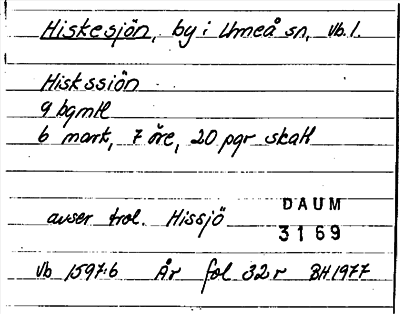 Hiskesjön, by i Umeå sn, Vb. l.
Hiskssiön
9 bgmtl
6 mark, 7 öre, 20 pgr skatt
avser trol. Hissjö
DAUM
3169
Vb 1597:6 År fol 32r BH 1977